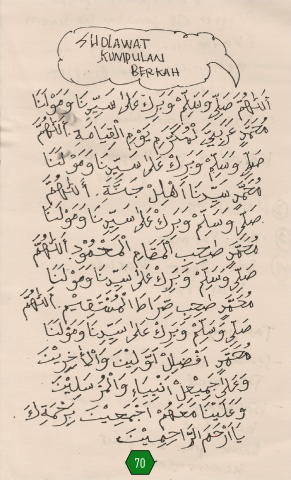 SHOLAWAT
KUMPULAN
BERKAH
اَللّٰهُمَّ صَلِّ وَسَلِّمْ وَبَرِكْ عَلٰى سَيِّدِنَا وَمَوْلٰنَا
مُحَمَّدٍ يَوْمِ الْقِيَامَةِ. اَللّٰهُمَّ
صَلِّ وَسَلِّمْ وَبَرِكْ عَلٰى سَيِّدِنَا وَمَوْلٰنَا
مُحَمَّدٍ سَيِّدِنَا اَهْلِلْ جَنَّةِ. اَللّٰهُمَّ
صَلِّ وَسَلِّمْ وَبَرِكْ عَلٰى سَيِّدِنَا وَمَوْلٰنَا
مُحَمَّدٍ صَاحِبِ الْمَقَامِ الْمَحْمُوْدِ. اَللّٰهُمَّ
صَلِّ وَسَلِّمْ وَبَرِكْ عَلٰى سَيِّدِنَا وَمَوْلٰنَا
مُحَمَّدٍ صَاحِبِ صِرَاطَ الْمُسْتَقِيْمِ. اَللّٰهُمَّ
صَلِّ وَسَلِّمْ وَبَرِكْ عَلٰى سَيِّدِنَا وَمَوْلٰنَا
مُحَمَّدٍ اَفْضَلِ لْاَوَّلِيْنَ وَالْاٰخِرِيْنَ
وَعَلٰى جَمِيْعِلْ اَنْبِيَاءِ وَالْمُرْسَلِيْنَ
وَعَلَيْنَا مَعَهُمْ اَجْمَعِيْنَ بِرَحْمَتِكَ
يَااَرْحَمَ الرَّاحِمِيْنَ
70